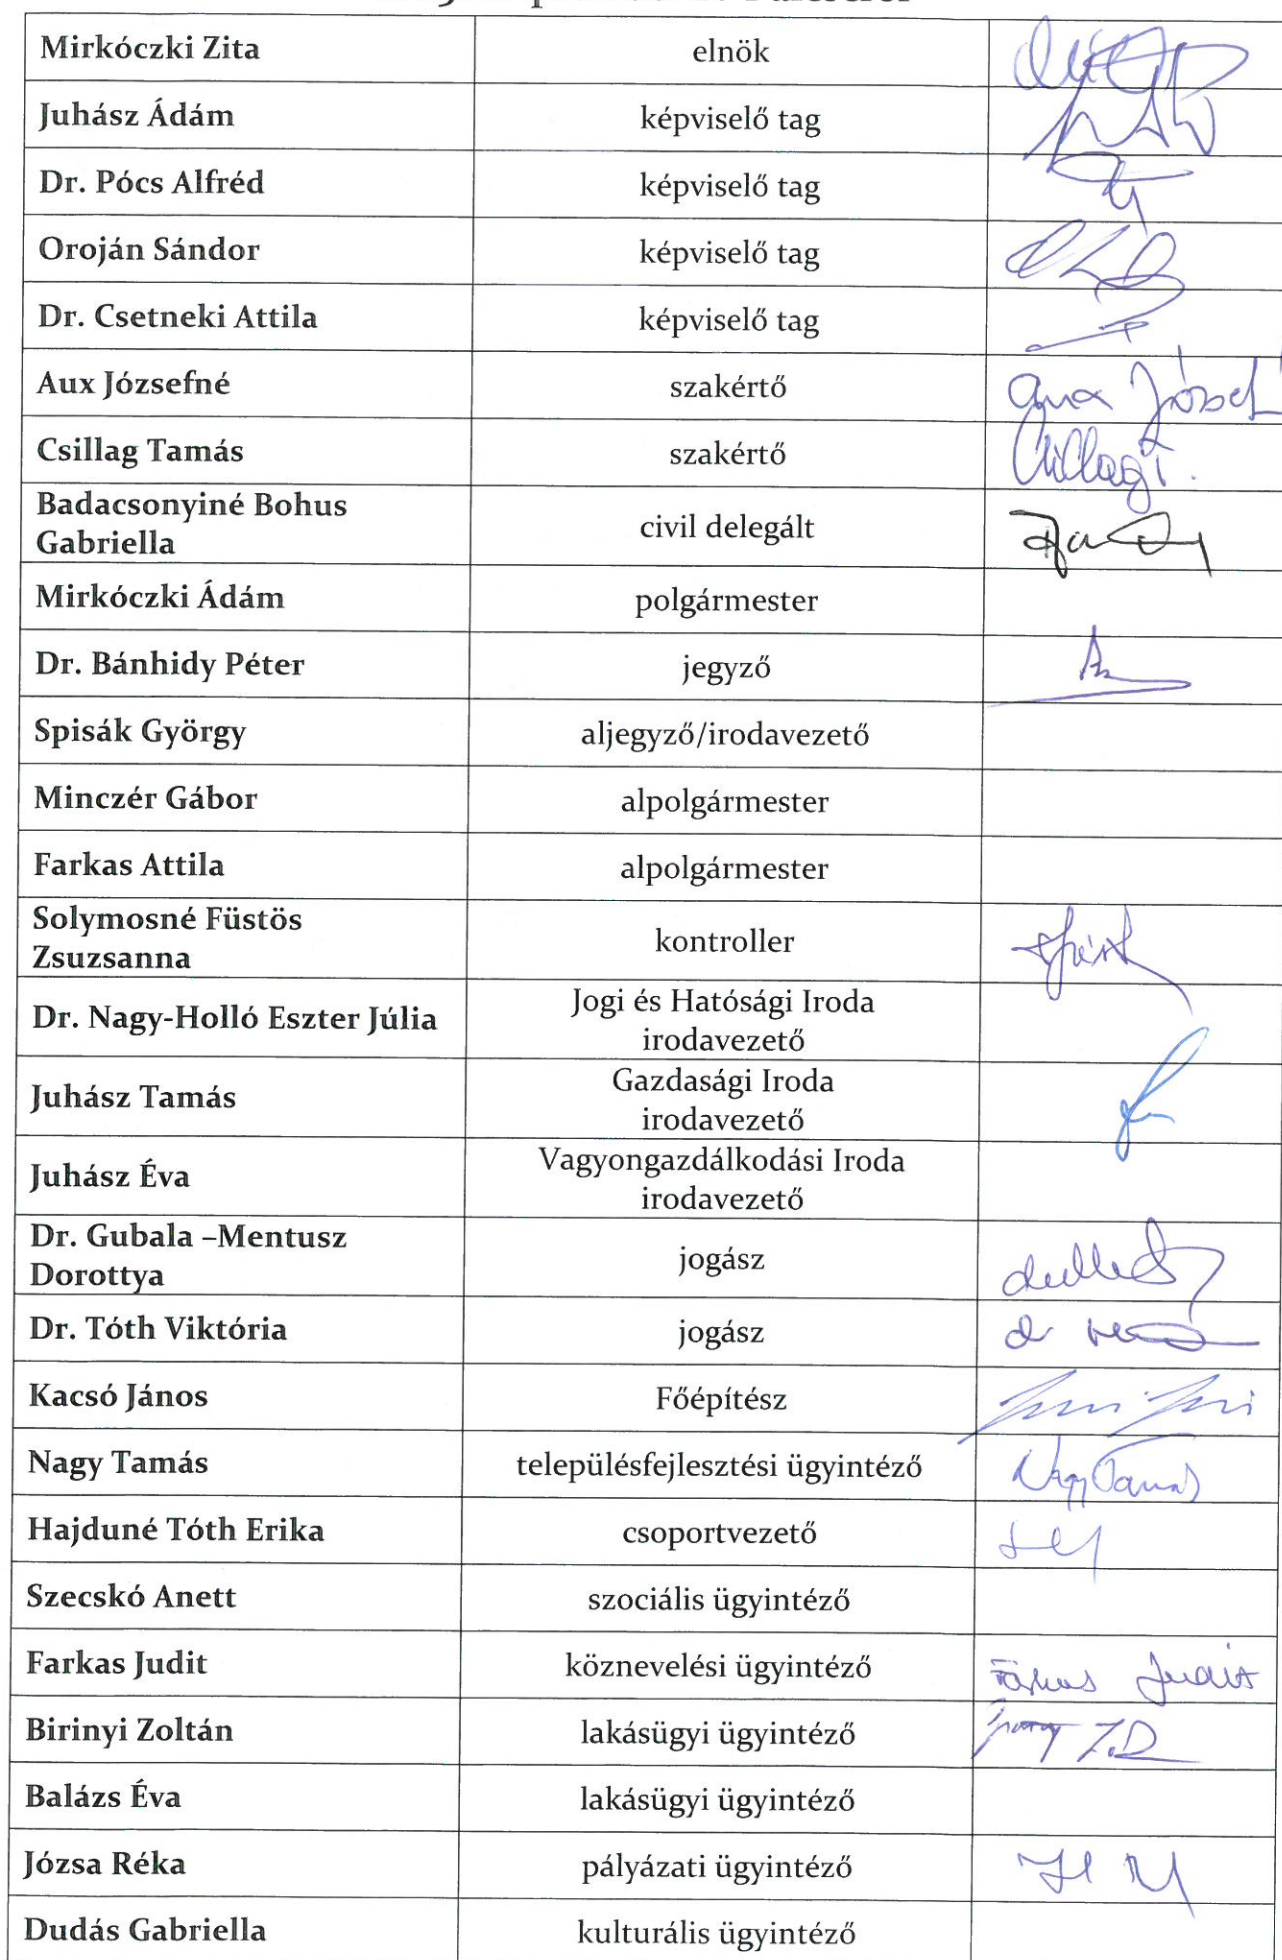 Mirkóczki Zita elnök
Juhász Ádám képviselő tag
Dr. Pócs Alfréd képviselő tag
Oroján Sándor képviselő tag
Dr. Csetneki Attila képviselő tag
Aux Józsefné szakértő
Csillag Tamás szakértő
Badacsonyiné Bohus
Gabriella civil delegált
Mirkóczki Ádám polgármester
Dr. Bánhidy Péter jegyző
Spisák György aljegyző/irodavezető
Minczér Gábor alpolgármester
Farkas Attila alpolgármester
Solymosné Füstös
Zsuzsanna kontroller
Dr. Nagy-Holló Eszter Júlia Jogi és Hatósági Iroda
irodavezető
Juhász Tamás Gazdasági Iroda
irodavezető
Juhász Éva Vagyongazdálkodási Iroda
irodavezető
Dr. Gubala –Mentusz
Dorottya jogász
Dr. Tóth Viktória jogász
Kacsó János Főépítész
Nagy Tamás településfejlesztési ügyintéző Nagy Tamás
Hajduné Tóth Erika csoportvezető
Szecskó Anett szociális ügyintéző
Farkas Judit köznevelési ügyintéző Farkas Judit
Birinyi Zoltán lakásügyi ügyintéző
Balázs Éva lakásügyi ügyintéző
Józsa Réka pályázati ügyintéző
Dudás Gabriella kulturális ügyintéző